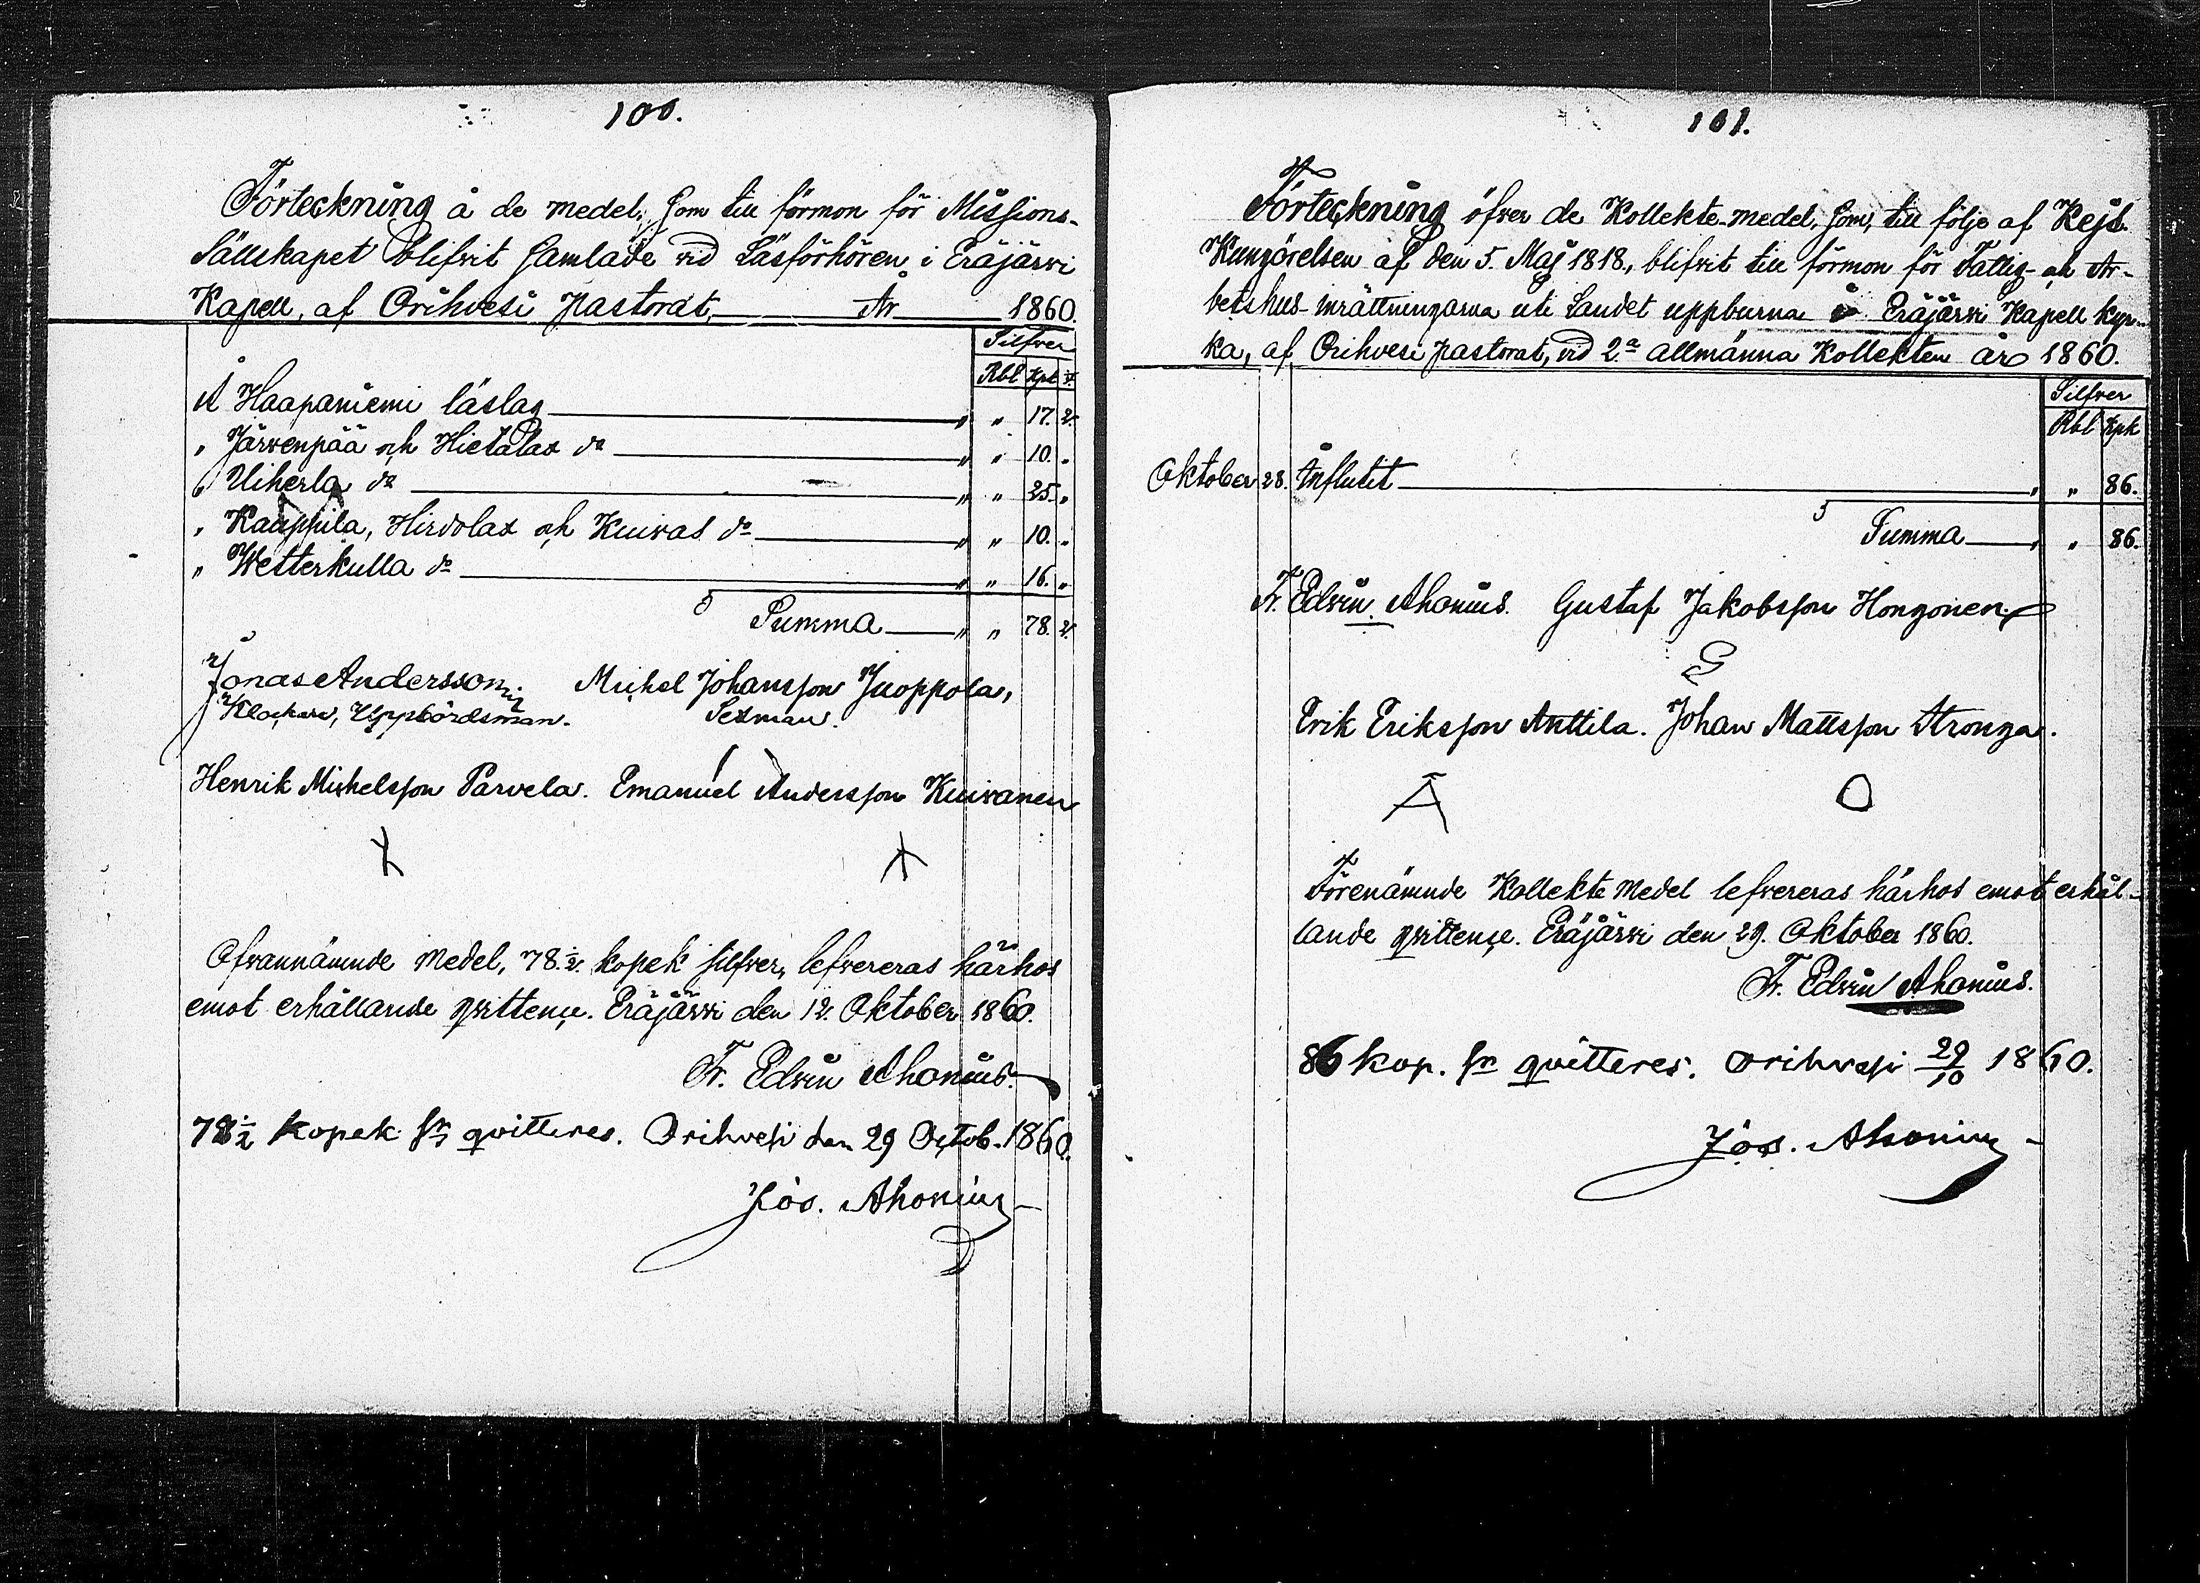 100.
Förteckning å de medel, som till förmon för Missions-
Sällskapet blifvit samlade vid Läsförhören i Eräjärvi
Kapell, af Orihvesi pastorat, År 1860.
Silfver
Rbl Kpk
Å Haapaniemi läslag " " 17. 2.
" Järvenpää och Hietalax do " " 10. "
" Uiherla do " " 25. "
" Kauppila, Hirvolax och Kuivas do " " 10. "
" Wetterkulla do " " 16. "
Summa " " 78. 2.
Jonas Andersson Michel Johansson Juoppola,
Klockare, Uppbördsman. Sexman.
Henrik Michelsson Parvela. Emanuel Andersson Kuivanen
Ofvannämnde medel, 78 1/2 kopek silfver, lefvereras härhos
emot erhållande qvittence. Eräjärvi den 12. Oktober 1860.
Fr. Edvin Ahonius.
78 1/2 kopek sr qvitteres. Orihvesi den 29 Octob. 1860.
Jos. Ahonius
101.
Förteckning öfver de Kollekte-medel, som, till följe af Kejs.
Kungörelsen af den 5. Maj 1818, blifvit till förmon för Fattig- och Ar-
betshus-inrättningarna uti Landet uppburna i Eräjärvi Kapell kyr-
ka, af Orihvesi pastorat, vid 2a allmänna Kollekten år 1860.
Silfver
Rbl Kpk
Oktober 28. Influtit " " 86.
Summa " " 86.
Fr. Edvin Ahonius. Gustaf Jakobsson Hongonen.
G
Erik Eriksson Anttila. Johan Mattsson Stronga.
A O
Förenämnde Kollekte medel lefvereras härhos emot erhål-
lande qvittence. Eräjärvi den 29. Oktober 1860.
Fr. Edvin Ahonius.
86 kop. sr qvitteres. Orihvesi 29/10 1860.
Jos. Ahonius